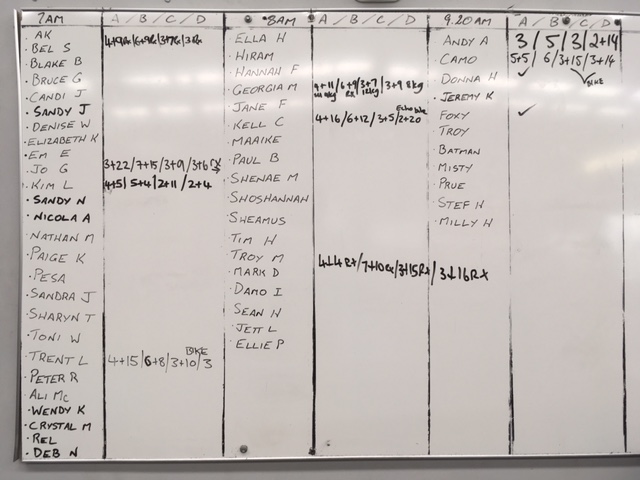 7AM A / B / C / D
AK 4+9Rx/6+9Rx/3+7Rx/3Rx
BEL S
BLAKE B
BRUCE G
CANDI J
SANDY J
DENISE W
ELIZABETH K
EM E
JO G 3+22/7+15/3+9/3+6 RX
KIM L 4+5/5+4/2+11/2+4
SANDY N
NICOLA A
NATHAN M
PAIGE K
PESA
SANDRA J
SHARYN T
TONI W
TRENT L 4+15/6+8/3+10/3 BIKE
PETER R
ALI MC
WENDY K
CRYSTAL M
REL
DEB N
8AM A / B / C / D
ELLA H
HIRAM
HANNAH F
GEORGIA M 4+11/6+9/3+7/3+9 8kg
RX 12kg
JANE F
KELL C 4+16/6+12/3+5/2+20 Echo bike
MAAIKE
PAUL B
SHENAE M
SHOSHANNAH
SHEAMUS
TIM H
TROY M
MARK D 4+4Rx/7+10Rx/3+15Rx/3+16Rx
DAMO I
SEAN H
JETT L
ELLIE P
9.20AM A / B / C / D
ANDY A 3/5/3/2+14
CAMO 5+5/6/3+15/3+14
DONNA H ✓ ✓ BIKE
JEREMY K
FOXY ✓
TROY
BATMAN
MISTY
PRUE
STEF H
MILLY H